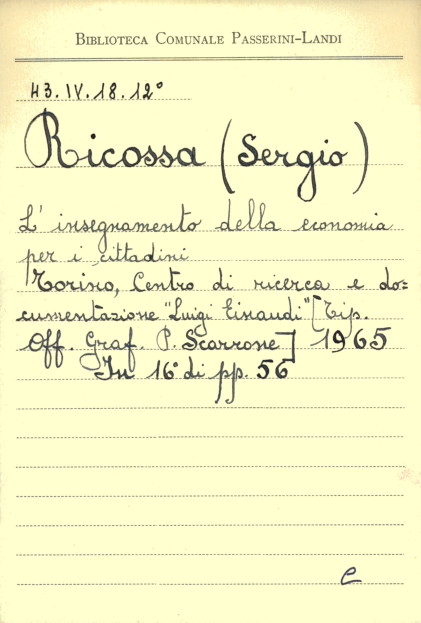 BIBLIOTECA COMUNALE PASSERINI-LANDI
43.IV.18.12°
Ricossa (Sergio)
L' insegnamento della economia
per i cittadini
Torino, Centro di ricerca e do=
cumentazione "Luigi Einaudi" [Tip.
Off. Graf. P. Scarrone] 1965
In 16° di pp. 56
e